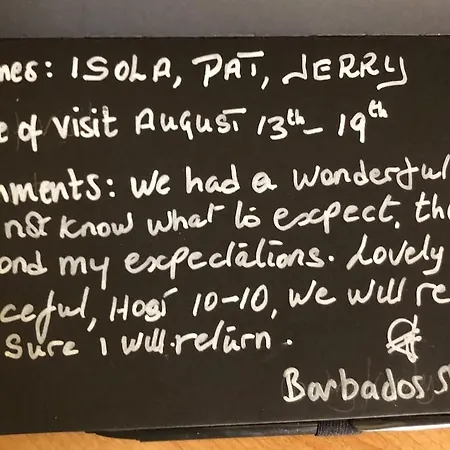 mes: ISOLA, PAT, JERRY
e of visit AUGUST 13th - 19th
mments: We had a wonderful
not know what to expect, the
ond my expectations. Lovely
ceful, Host 10-10, We will re
Sure I will return.
Barbados S